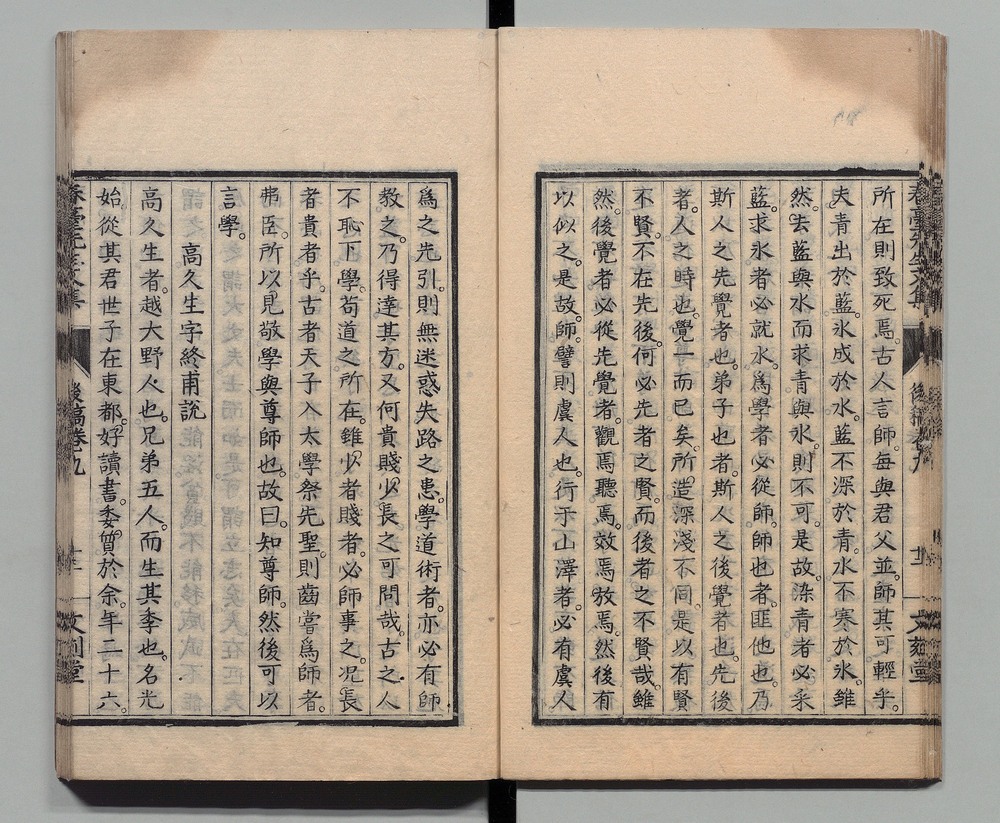 所在則致死焉。古人言師。每與君父並。師其可輕乎。
夫青出於藍。氷成於水。藍不深於青。水不寒於氷。雖
然。去藍與水而求青與氷。則不可。是故染青者必采
藍。求氷者必就水。爲學者必從師。師也者匪他也。乃
斯人之先覺者也。弟子也者。斯人之後覺者也。先後
者。人之時也。覺一而已矣。所造深淺不同。是以有賢
不賢。不在先後。何必先者之賢。而後者之不賢哉。雖
然。後覺者必從先覺者。觀焉聽焉。效焉放焉。然後有
以似之。是故師。譬則虞人也。行于山澤者。必有虞人
爲之先引。則無迷惑失路之患。學道術者。亦必有師
敎之。乃得達其方。又何貴賤少長之可問哉。古之人
不恥下學。苟道之所在。雖少者賤者。必師事之。况長
者貴者乎。古者天子入太學祭先聖。則齒嘗爲師者。
弗臣。所以見敬學與尊師也。故曰。知尊師。然後可以
言學。
高久生字終甫說
高久生者。越大野人也。兄弟五人。而生其季也。名光
始。從其君世子在東都。好讀書。委質於余。年二十六。
後稿卷九